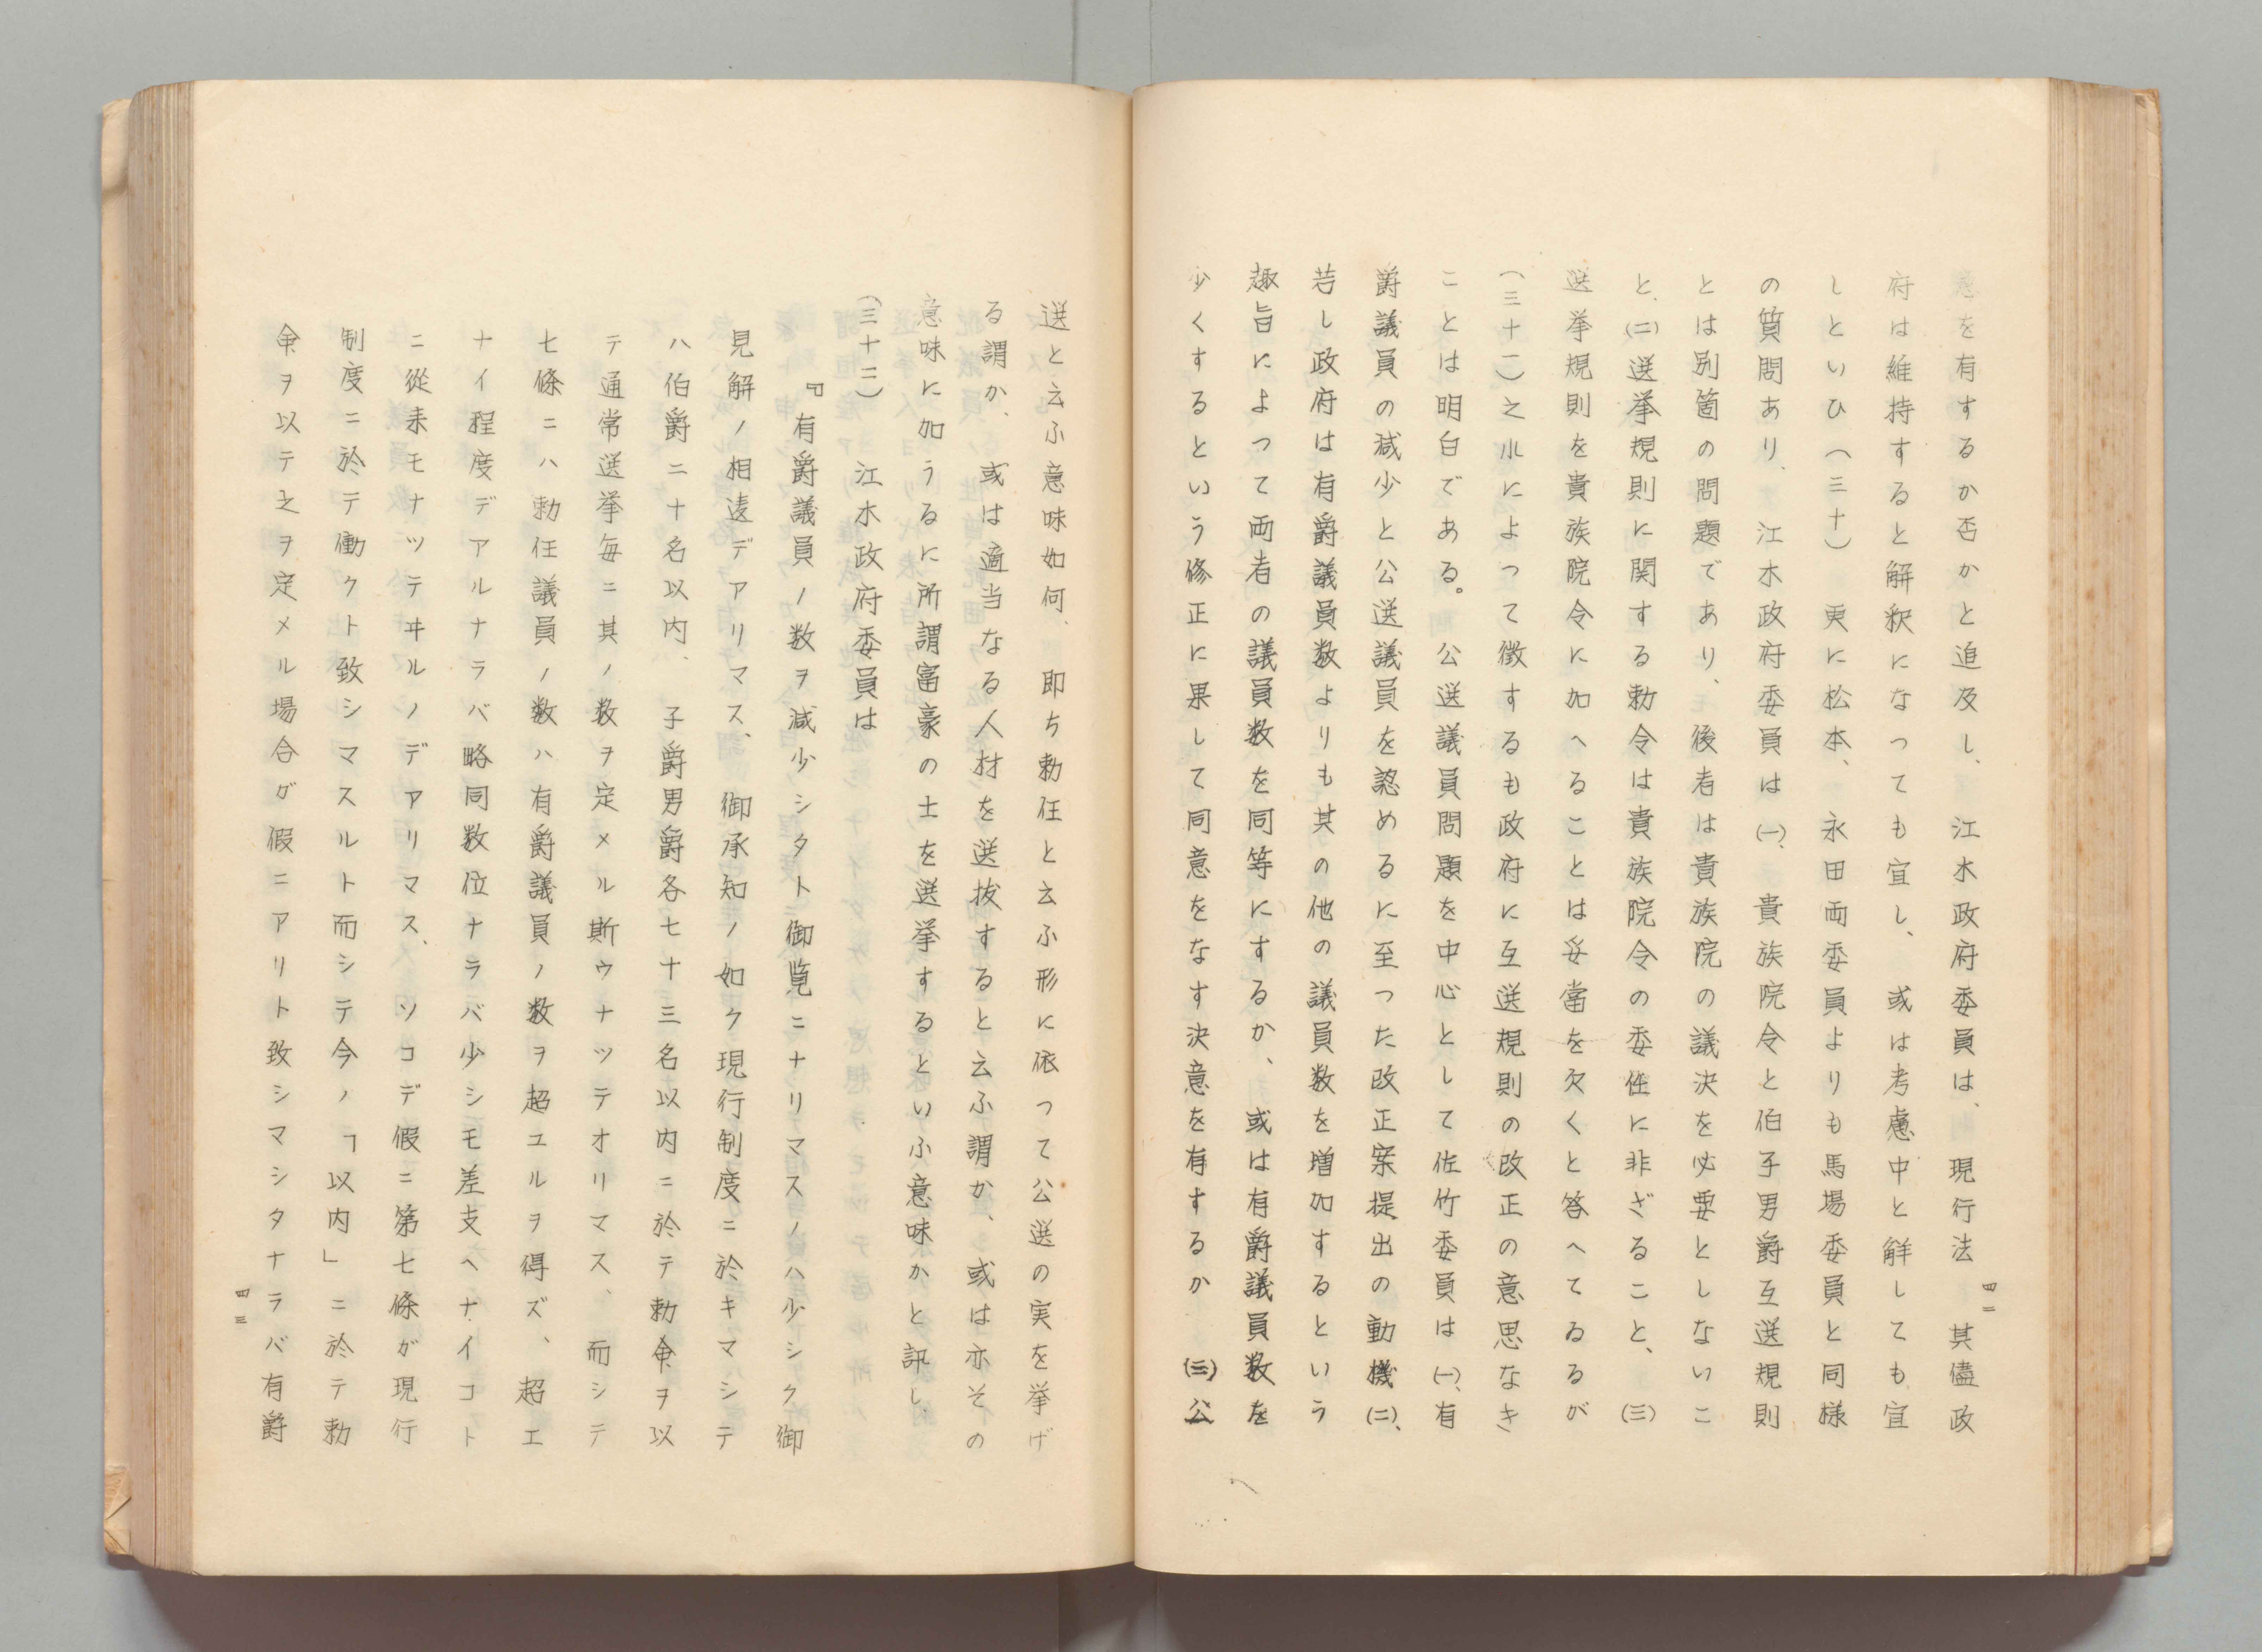 意を有するか否かと追及し、江木政府委員は、現行法其儘政
府は維持すると解釈になっても宜し、或は考慮中と解しても宜
しといひ(三十)更に松本、永田両委員よりも馬場委員と同様
の質問あり、江木政府委員は(一)、貴族院令と伯子男爵互選規則
とは別箇の問題であり、後者は貴族院の議決を必要としないこ
と、(二)選挙規則に関する勅令は貴族院令の委任に非ざること、(三)
選挙規則を貴族院令に加へることは妥當を欠くと答へてゐるが
(三十二)之れによって徴するも政府に互選規則の改正の意思なき
ことは明白である。公選議員問題を中心として佐竹委員は(一)、有
爵議員の減少と公選議員を認めるに至った改正案提出の動機(二)、
若し政府は有爵議員数よりも其の他の議員数を増加するという
趣旨によって両者の議員数を同等にするか、或は有爵議員数を
少くするという修正に果して同意をなす決意を有するか(三)公
四二
選と云ふ意味如何、即ち勅任と云ふ形に依って公選の実を挙げ
る謂か、或は適当なる人材を選抜すると云ふ謂か、或は亦その
意味に加うるに所謂富豪の士を選挙するといふ意味かと訊し、
(三十三)江木政府委員は
『有爵議員ノ数ヲ減少シタト御覧ニナリマスノハ少シク御
見解ノ相違デアリマス、御承知ノ如ク現行制度ニ於キマシテ
ハ伯爵二十名以内、子爵男爵各七十三名以内ニ於テ勅命ヲ以
テ通常選挙毎ニ其ノ数ヲ定メル斯ウナツテオリマス、而シテ
七條ニハ勅任議員ノ数ハ有爵議員ノ数ヲ超ユルヲ得ズ、超エ
ナイ程度デアルナラバ略同数位ナラバ少シモ差支ヘナイコト
ニ從来モナツテヰルノデアリマス、ソコデ假ニ第七條ガ現行
制度ニ於テ働クト致シマスルト而シテ今ノ「以内」ニ於テ勅
命ヲ以テ之ヲ定メル場合ガ假ニアリト致シマシタナラバ有爵
四三